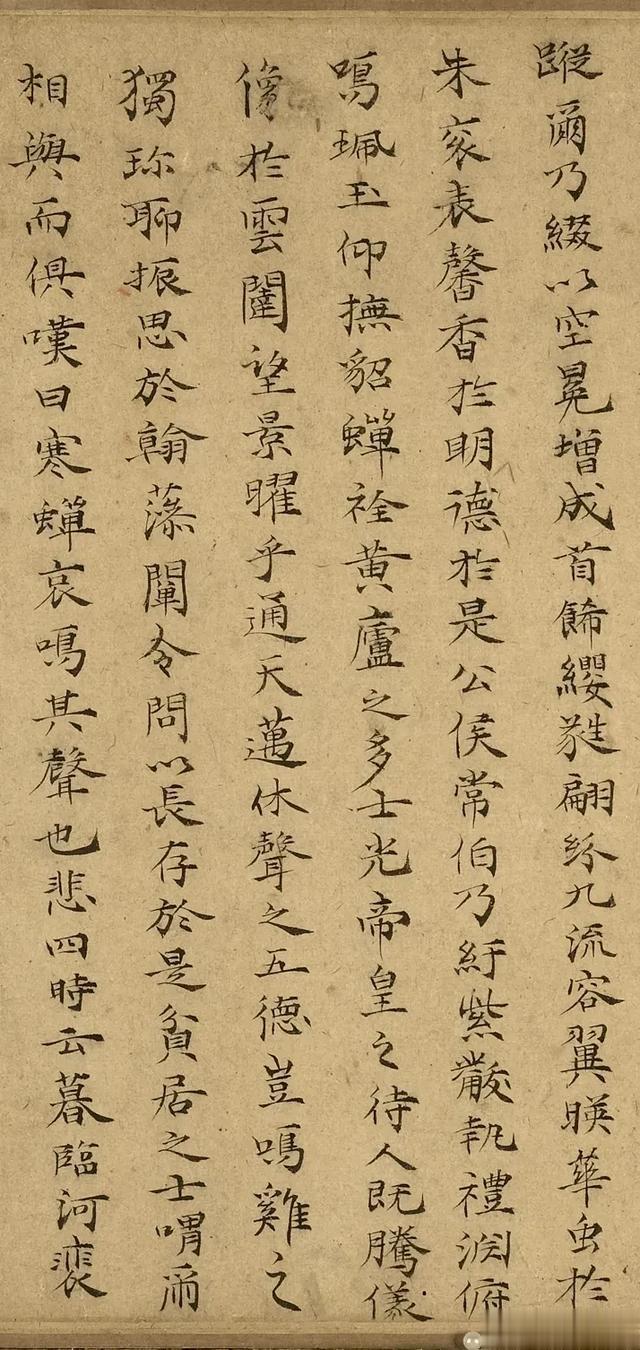 蹤爾乃綴以空冕增成首餙纓蕤翩紛九流容翼暎華虫於
朱衮表馨香於明德於是公侯常伯乃紆紫黻執禮淵俯
鳴珮玉仰撫貂蟬裣黄廬之多士光帝皇之待人既騰儀
像於雲闈望景曜乎通天邁休聲之五德豈鳴雞之
獨珎聊振思於翰藻闡令問以長存於是貧居之士喟爾
相與而俱嘆曰寒蟬哀鳴其聲也悲四時云暮臨河裴